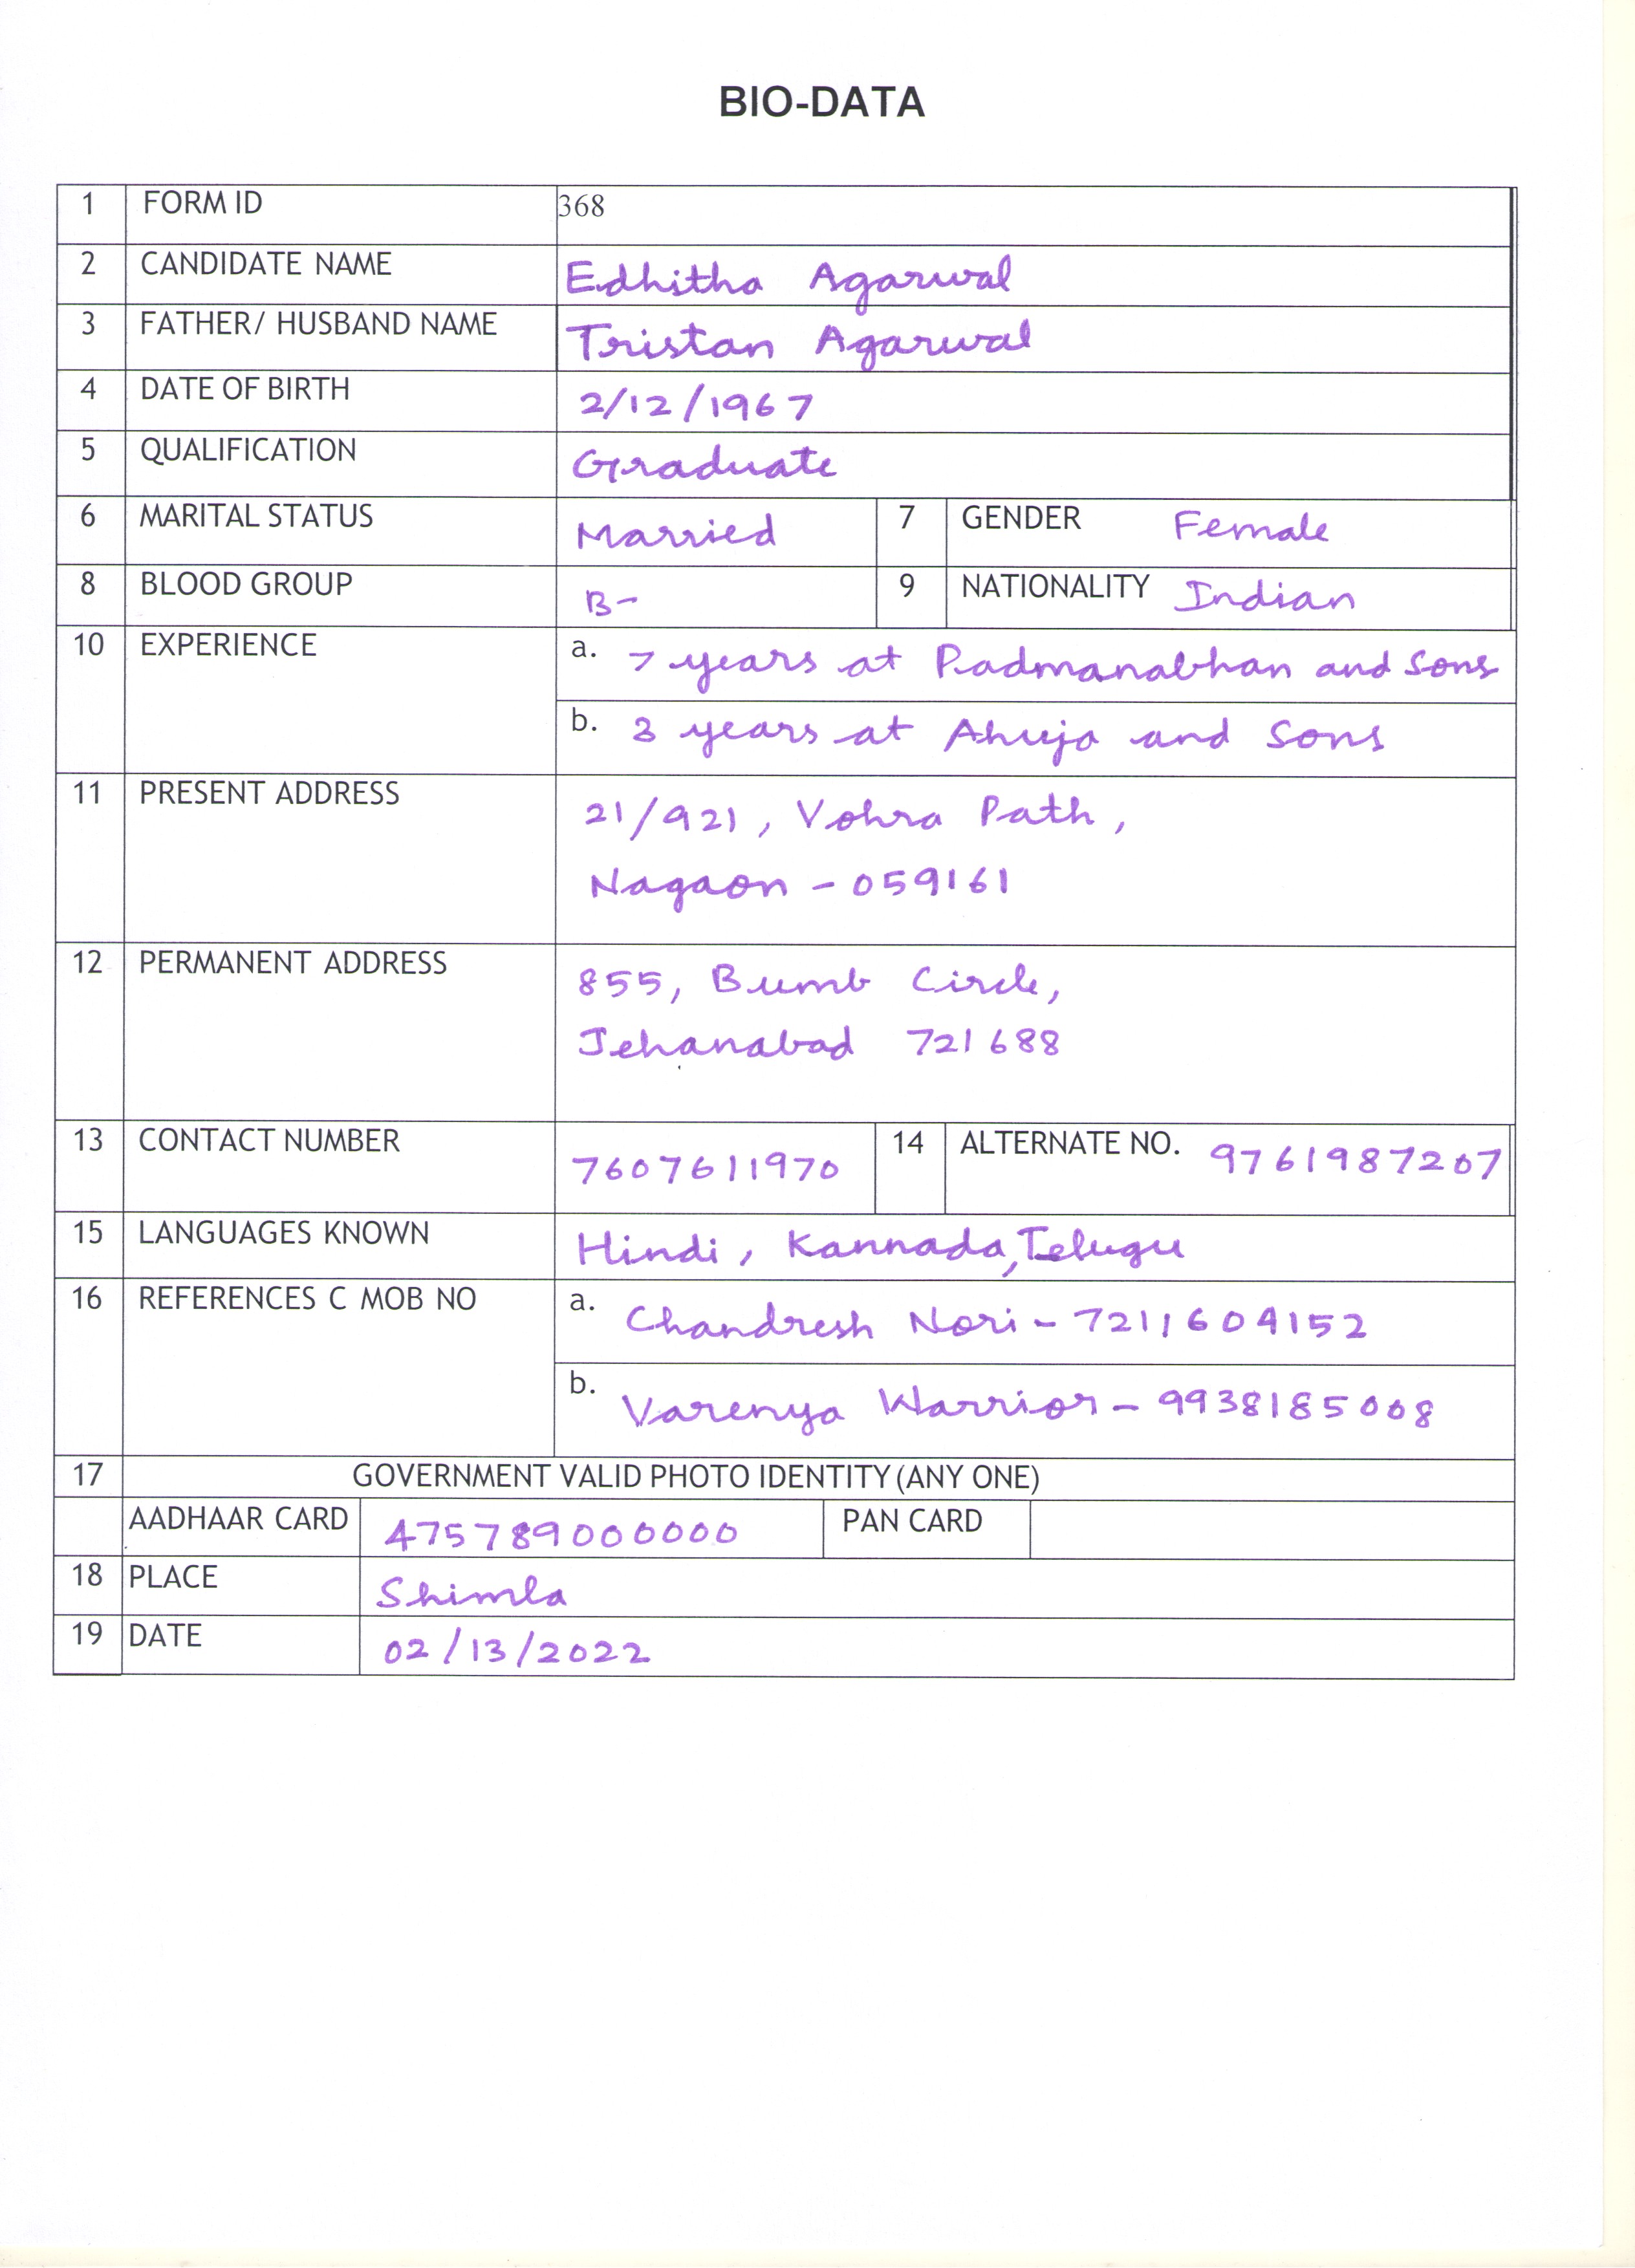 BIO-DATA
1 FORM ID 368
2 CANDIDATE NAME Edhitha Agarwal
3 FATHER/ HUSBAND NAME Tristan Agarwal
4 DATE OF BIRTH 2/12/1967
5 QUALIFICATION Graduate
6 MARITAL STATUS Married 7 GENDER Female
8 BLOOD GROUP B- 9 NATIONALITY Indian
10 EXPERIENCE a. 7 years at Padmanabhan and Sons
b. 3 years at Ahuja and Sons
11 PRESENT ADDRESS 21/921, Vohra Path,
Nagaon - 059161
12 PERMANENT ADDRESS 855, Bumb Circle,
Jehanabad 721688
13 CONTACT NUMBER 7607611970 14 ALTERNATE NO. 9761987207
15 LANGUAGES KNOWN Hindi, Kannada, Telugu
16 REFERENCES C MOB NO a. Chandresh Nori - 7211604152
b. Varenya Warrior - 9938185008
17 GOVERNMENT VALID PHOTO IDENTITY (ANY ONE)
AADHAAR CARD 475789000000 PAN CARD
18 PLACE Shimla
19 DATE 02/13/2022